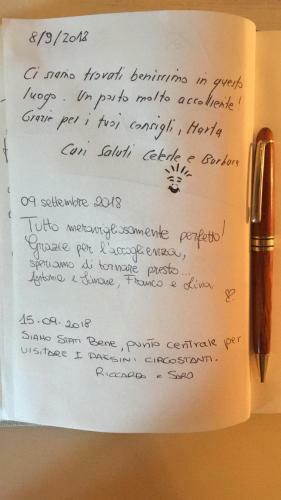 8/9/2018
Ci siamo trovati benissimo in questo
luogo. Un posto molto accogliente!
Grazie per i tuoi consigli, Marta
Cari Saluti Celeste e Barbara
09 settembre 2018
Tutto meravigliosamente perfetto!
Grazie per l'accoglienza,
speriamo di tornare presto...
Antonia e Simone, Franco e Lina
15.09.2018
SIAMO STATI BENE, PUNTO CENTRALE PER
VISITARE I PAESINI CIRCOSTANTI.
RICCARDO e SARO